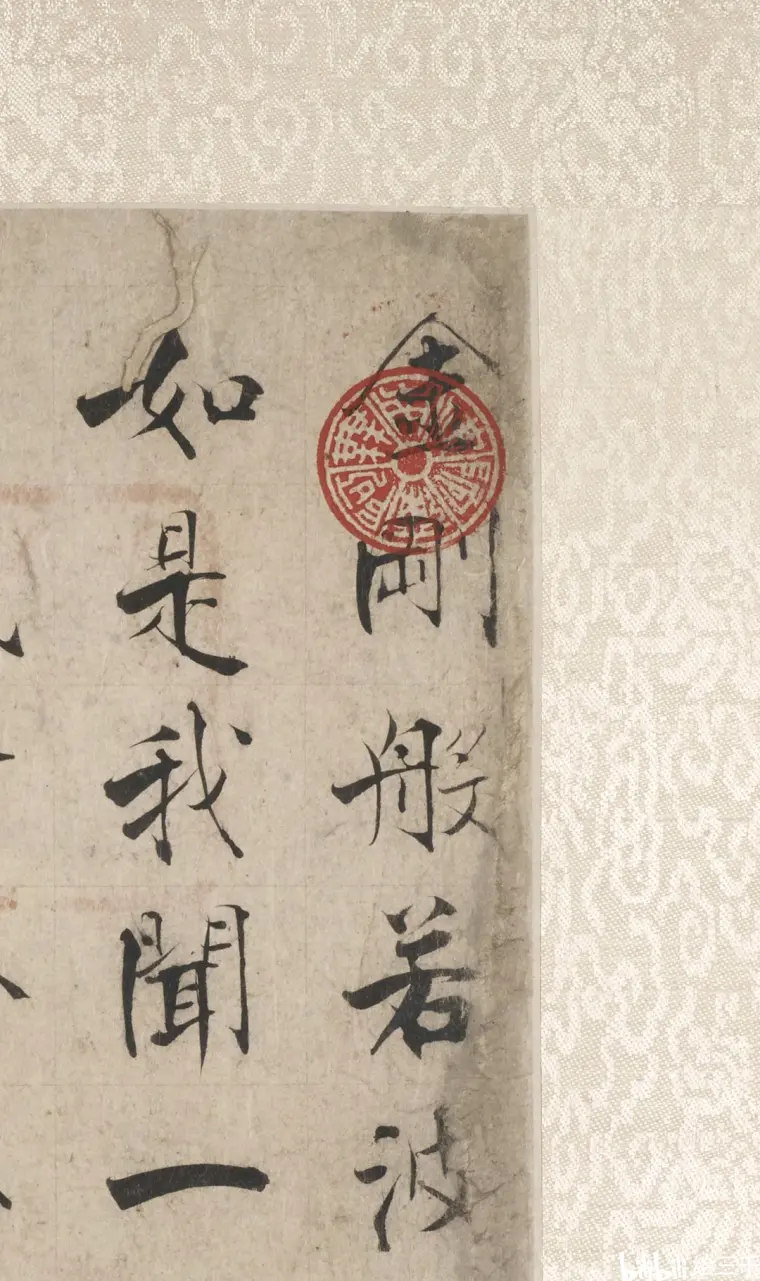 金剛般若波
如是我聞一